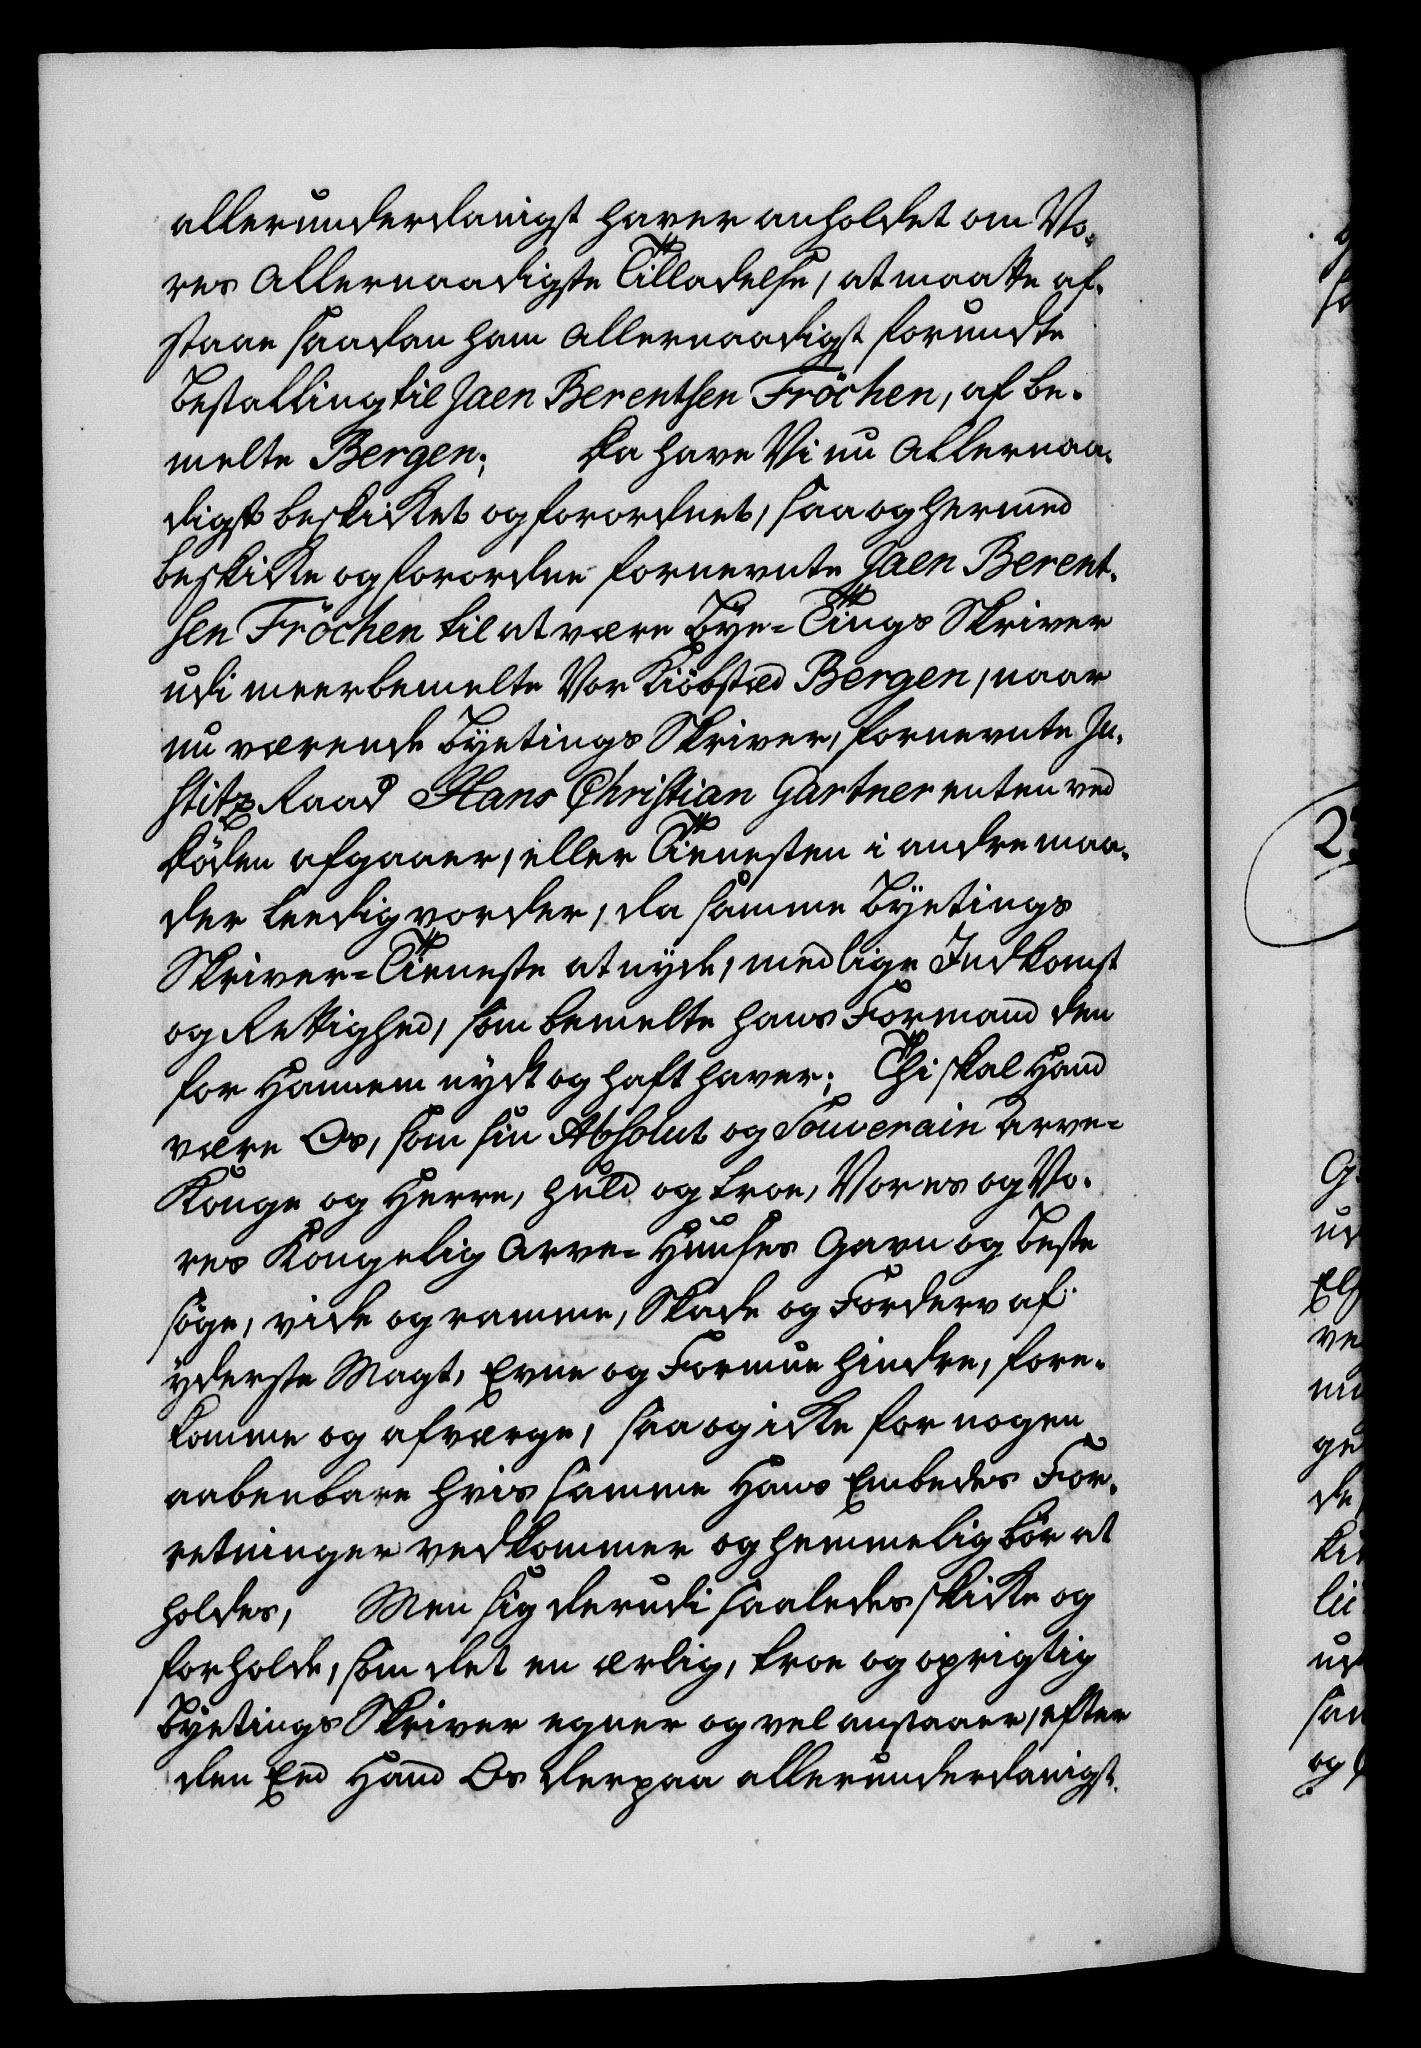 allerunderdanigst haver anholdet om Vo-
res Allernaadigste Tilladelse, at maatte af-
staae saadan ham Allernaadigst forundte
Bestalling til Jaen Berentsen Fröchen, af be-
melte Bergen; Da have Vi nu Allernaa-
digst beskikket og forordnet, saa og hermed
beskikke og forordne fornevnte Jaen Berent-
sen Fröchen til at være Bÿe-Tings Skriver
udi meerbemelte Vor Kiöbsted Bergen, naar
nu værende Bÿetings Skriver, fornevnte Ju-
stitz Raad Hans Christian Gartner enten ved
Döden afgaaer, eller Tienesten i andre maa-
der Leedig vorder, da samme Bÿetings
Skriver-Tieneste at nÿde, med lige Indkomst
og Rettighed, som bemelte hans Formand den
for Hannem nÿdt og haft haver; Thi skal Hand
være Os, som sin Absolut og Souverain Arve-
Konge og Herre, huld og troe, Vores og Vo-
res Kongelig Arve-Huuses Gavn og beste
söge, vide og ramme, Skade og Forderv af
ÿderste Magt, Evne og Formue hindre, fore-
komme og afværge, saa og ikke for nogen
aabenbare hvis samme Hans Embedes For-
retninger vedkommer og hemmelig bör at
holdes, Men sig derudi saaledes skikke og
forholde, som det en ærlig, troe og oprigtig
Bÿetings Skriver egner og vel anstaaer, efter
den Eed Hand Os derpaa allerunderdanigst